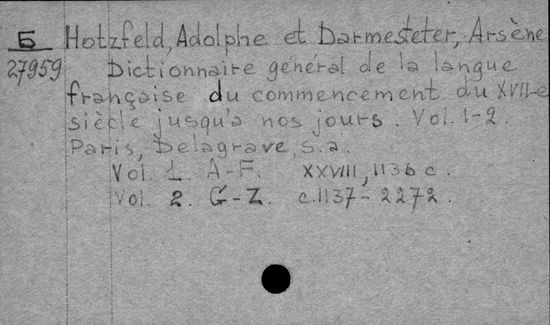 Б Hotzfeld, Adolphe et Darmesteter, Arsène
27959 Dictionnaire général de la langue
française du commencement du XVII-e
siècle jusqu'à nos jours. Vol. 1-2.
Paris, Delagrave, s.a.
Vol. 1. A-F. XXVIII, 1136 c.
Vol. 2. G-Z. c.1137-2272.